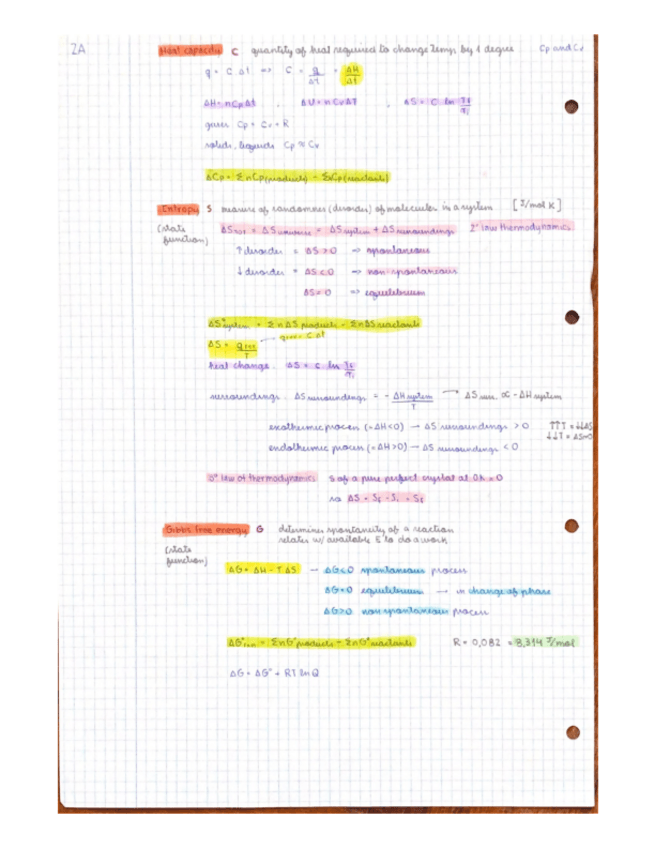 2A
Heat capacity C quantity of heat required to change temp by 1 degree Cp and Cv
q = C Δt => C = q/Δt = ΔH/Δt
ΔH = nCpΔt , ΔU = nCvΔT , ΔS = C ln Tf/Ti
gases Cp = Cv + R
solids, liquids Cp ≈ Cv
ΔCp = ΣnCp(products) - ΣnCp(reactants)
Entropy S measure of randomness (disorder) of molecules in a system [J/mol K]
(state function)
ΔStot = ΔSuniverse = ΔSsystem + ΔSsurroundings 2° law thermodynamics
↑ disorder = ΔS>0 => spontaneous
↓ disorder = ΔS<0 => non-spontaneous
ΔS=0 => equilibrium
ΔS°system = ΣnΔS products - ΣnΔS reactants
ΔS = qrev/T qrev = C Δt
heat change. ΔS = C ln Tf/Ti
surroundings. ΔSsurroundings = - ΔHsystem/T → ΔSsurr. ∝ -ΔHsystem
exothermic process (=ΔH<0) → ΔSsurroundings >0
endothermic process (=ΔH>0) → ΔSsurroundings <0
3° law of thermodynamics S of a pure perfect crystal at 0K = 0
so ΔS = Sf - Si = Sf
Gibbs free energy G determines spontaneity of a reaction
relates w/ available E to do a work
(state function)
ΔG = ΔH - TΔS → ΔG<0 spontaneous process
ΔG=0 equilibrium → in change of phase
ΔG>0 non spontaneous process
ΔG°rxn = ΣnG°products - ΣnG°reactants R = 0,082 = 8,314 J/mol
ΔG = ΔG° + RT ln Q